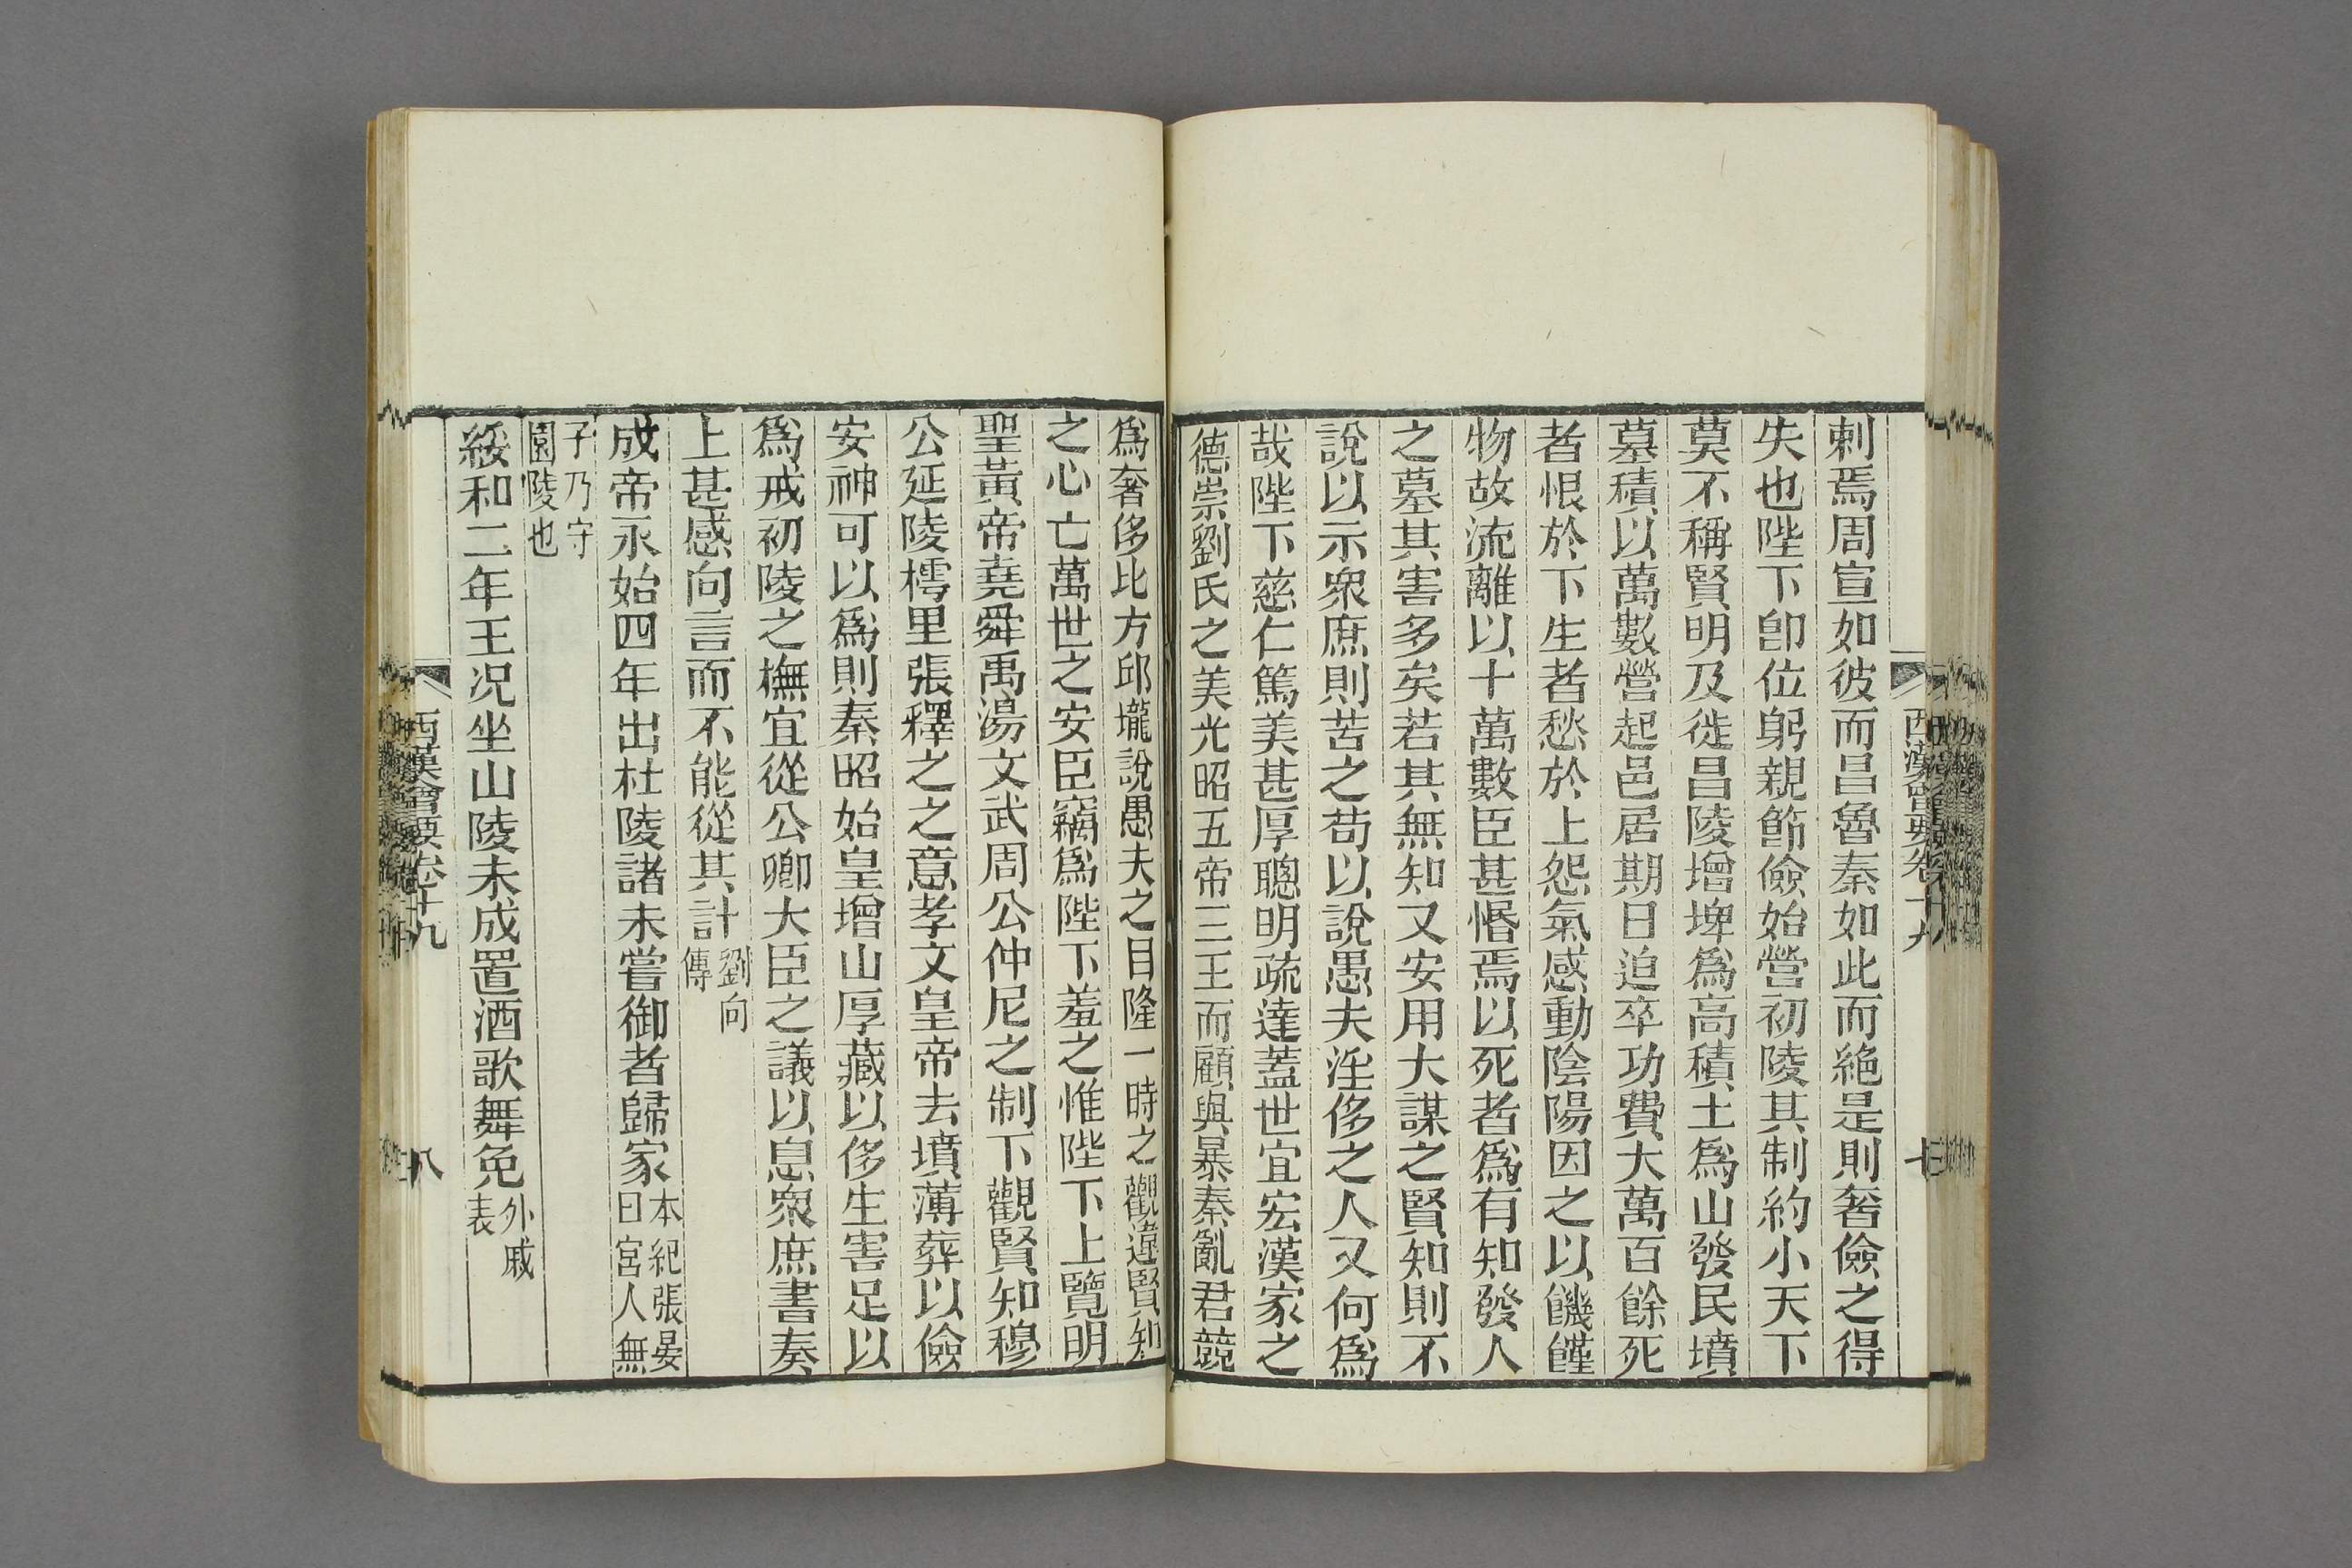 刺焉周宣如彼而昌魯秦如此而絶是則奢儉之得
失也陛下卽位躬親節儉始營初陵其制約小天下
莫不稱賢明及徙昌陵增埤爲高積土爲山發民墳
墓積以萬數營起邑居期日迫卒功費大萬百餘死
者恨於下生者愁於上怨氣感動陰陽因之以饑饉
物故流離以十萬數臣甚惽焉以死者爲有知發人
之墓其害多矣若其無知又安用大謀之賢知則不
說以示衆庶則苦之苟以說愚夫淫侈之人又何爲
哉陛下慈仁篤美甚厚聰明疏達蓋世宜宏漢家之
德崇劉氏之美光昭五帝三王而顧與暴秦亂君競
爲奢侈比方邱壠說愚夫之目隆一時之觀違賢知
之心亡萬世之安臣竊爲陛下羞之惟陛下上覽明
聖黃帝堯舜禹湯文武周公仲尼之制下觀賢知穆
公延陵樗里張釋之之意孝文皇帝去墳薄葬以儉
安神可以爲則秦昭始皇增山厚藏以侈生害足以
爲戒初陵之橅宜從公卿大臣之議以息衆庶書奏
上甚感向言而不能從其計劉向
傳
成帝永始四年出杜陵諸未嘗御者歸家本紀張晏
曰宮人無
子乃守
園陵也
綏和二年王況坐山陵未成置酒歌舞免外戚
表
西漢會要卷十九
八